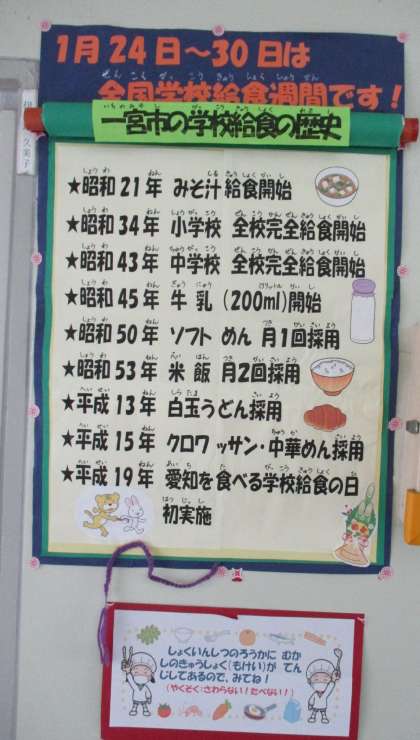 1月24日～30日は
全国学校給食週間です！
一宮市の学校給食の歴史
★昭和21年 みそ汁給食開始
★昭和34年 小学校 全校完全給食開始
★昭和43年 中学校 全校完全給食開始
★昭和45年 牛乳（200ml）開始
★昭和50年 ソフトめん 月1回採用
★昭和53年 米飯 月2回採用
★平成13年 白玉うどん採用
★平成15年 クロワッサン・中華めん採用
★平成19年 愛知を食べる学校給食の日
初実施
しょくいんしつのろうかに むか
しのきゅうしょく（もけい）が てん
じしてあるので、みてね！
（やくそく：さわらない！たべない！）